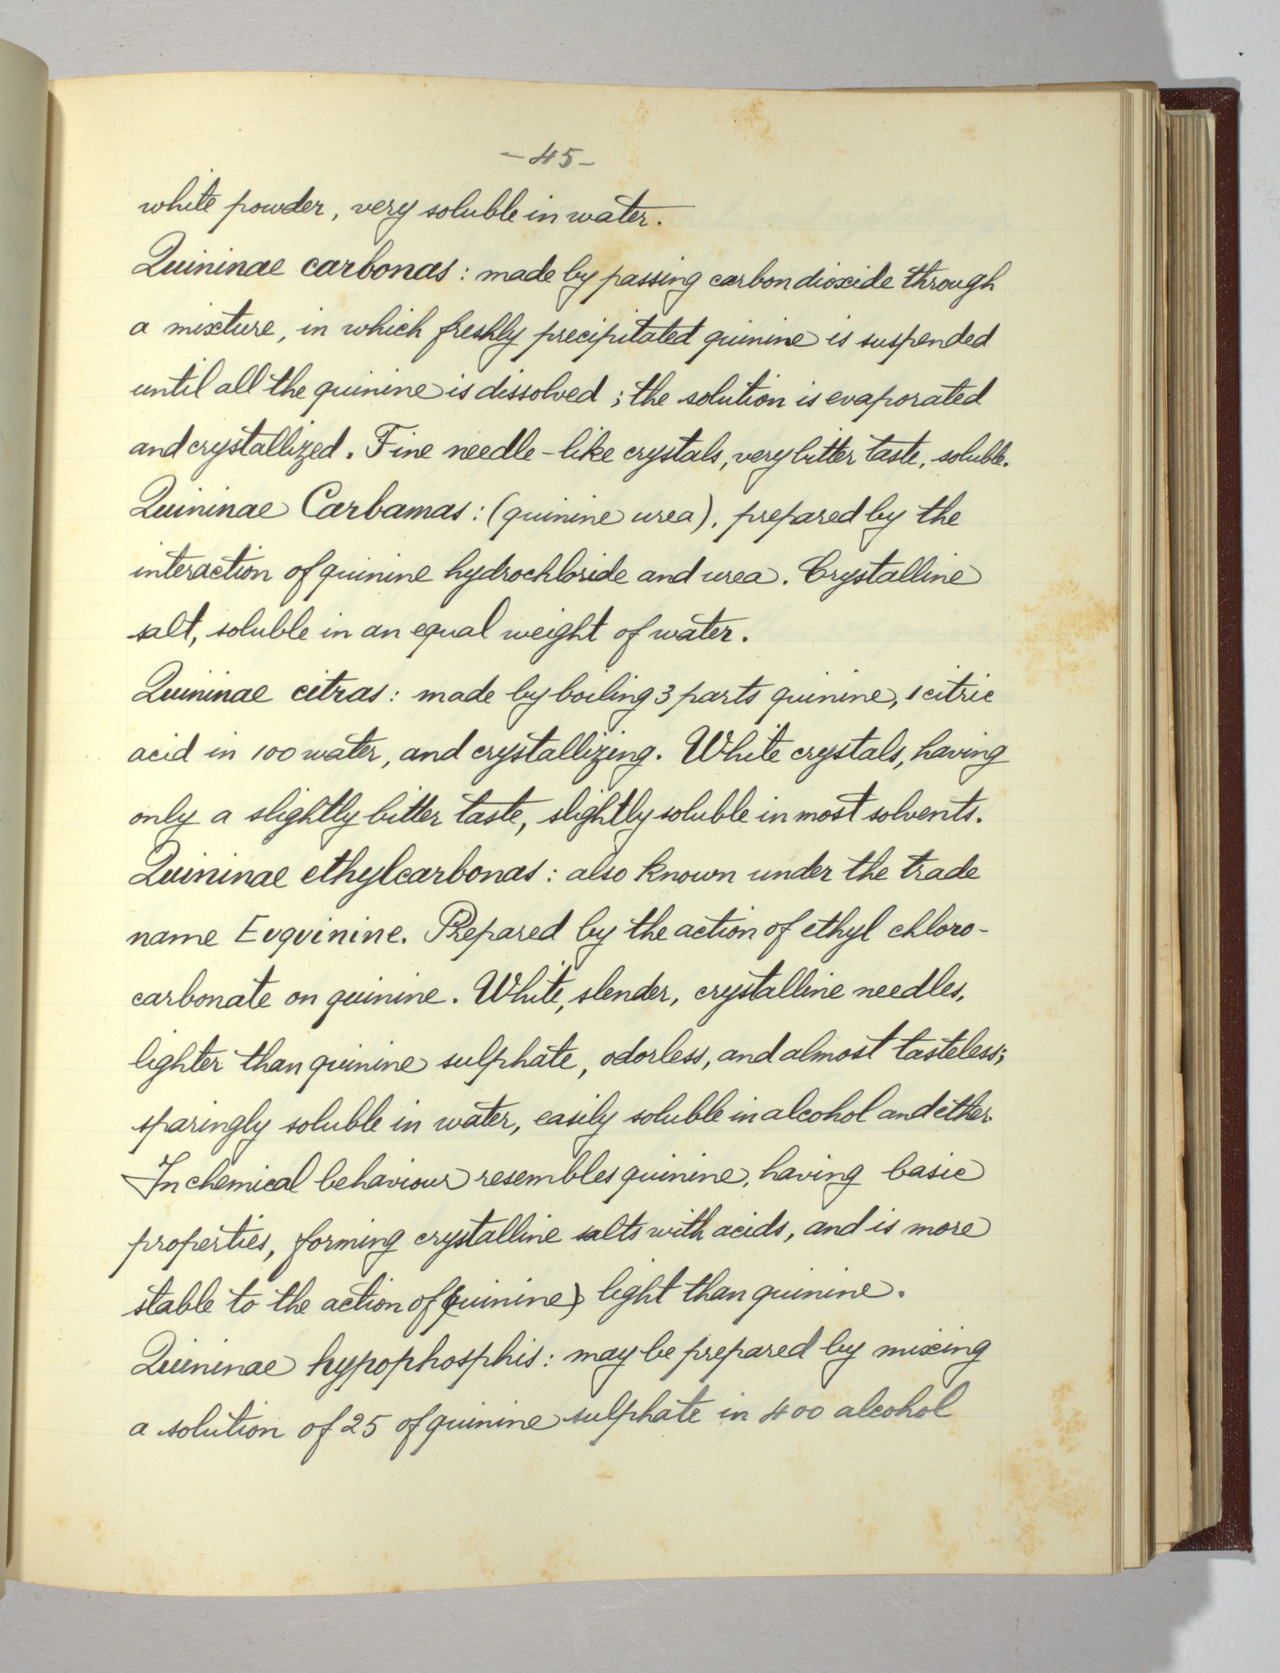 -45-
white powder, very soluble in water.
Quininae carbonas: made by passing carbon dioxide through
a mixture, in which freshly precipitated quinine is suspended
until all the quinine is dissolved; the solution is evaporated
and crystallized. Fine needle-like crystals, very bitter taste, soluble.
Quininae Carbamas: (quinine urea), prepared by the
interaction of quinine hydrochloride and urea. Crystalline
salt, soluble in an equal weight of water.
Quininae citras: made by boiling 3 parts quinine, 1 citric
acid in 100 water, and crystallizing. White crystals, having
only a slightly bitter taste, slightly soluble in most solvents.
Quininae ethylcarbonas: also known under the trade
name Euquinine. Prepared by the action of ethyl chloro-
carbonate on quinine. White, slender, crystalline needles,
lighter than quinine sulphate, odorless, and almost tasteless;
sparingly soluble in water, easily soluble in alcohol and ether.
In chemical behaviour resembles quinine, having basic
properties, forming crystalline salts with acids, and is more
stable to the action of (quinine) light than quinine.
Quininae hypophosphis: may be prepared by mixing
a solution of 25 of quinine sulphate in 400 alcohol